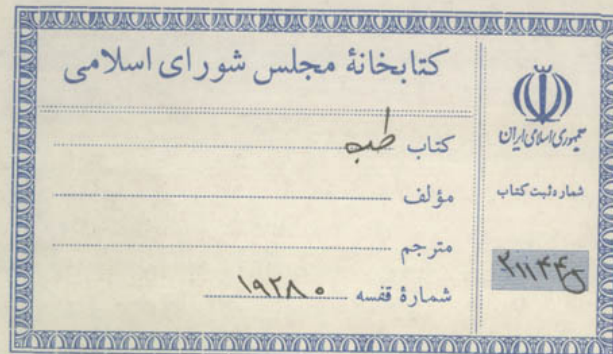 کتابخانهٔ مجلس شورای اسلامی
کتاب طب
مؤلف
مترجم
شمارهٔ قفسه ۱۹۲۸۰
جمهوری اسلامی ایران
شماره ثبت کتاب